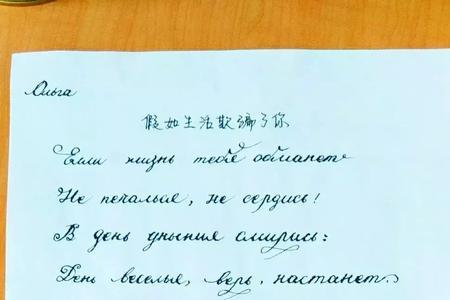 Ольга
假如生活欺骗了你
Если жизнь тебя обманет
Не печалься, не сердись!
В день уныния смирись:
День веселья, верь, настанет.